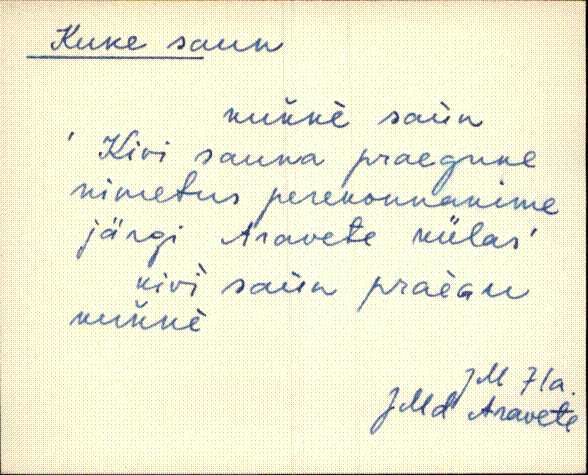 Kuke saun
kuǩkè saùn
' Kivi sauna praegune
nimetus perekonnanime
järgi Aravete külas'
kivì saùn praèGu
kuǩkè
JM 71a.
JMd Aravete